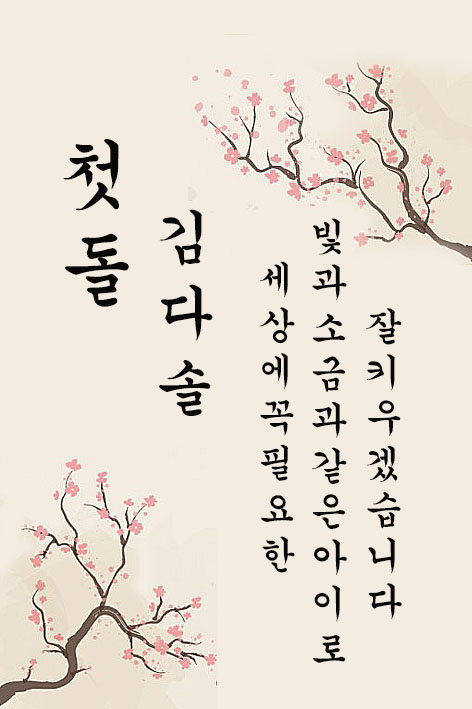 첫돌
김다솔
세상에꼭필요한
빛과소금과같은아이로
잘키우겠습니다